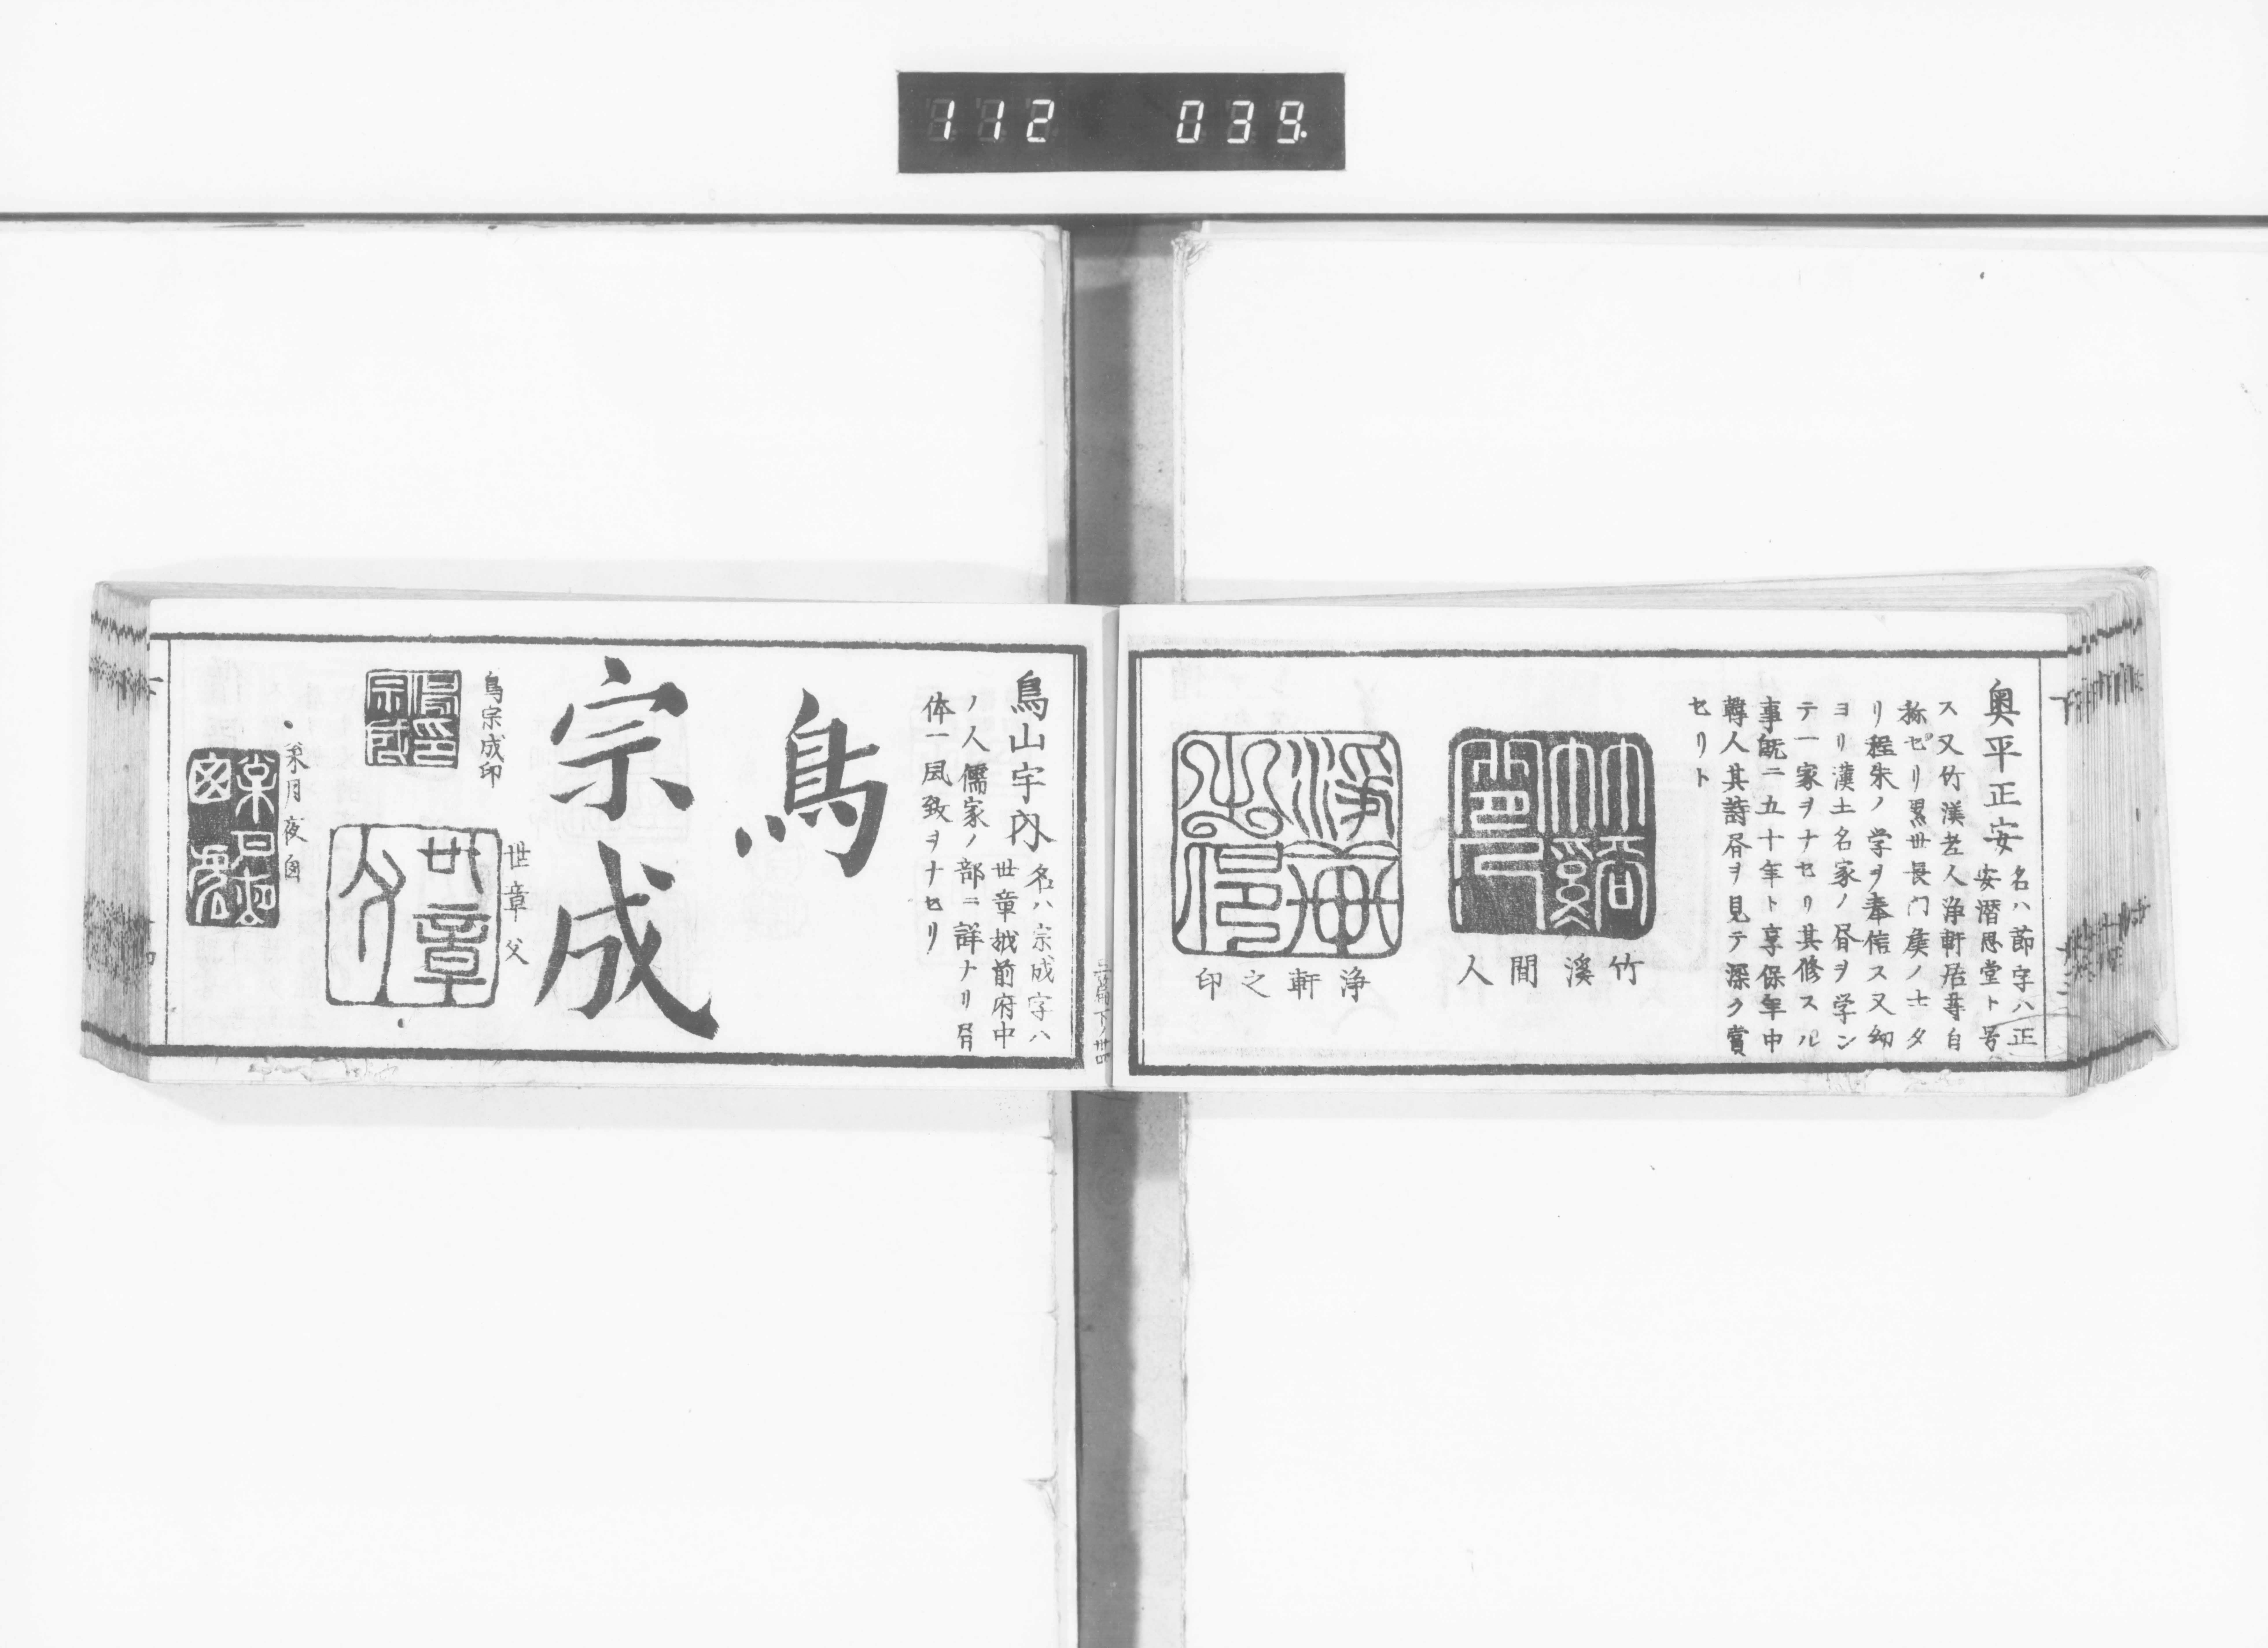 112 039.
奥平正安 名ハ節字ハ正
安潜思堂ト号
ス又竹渓老人浄軒居等自
称セリ累世長门矦ノ士タ
リ程朱ノ学ヲ奉信ス又幼
ヨリ漢土名家ノ昏ヲ学ン
テ一家ヲナセリ其修スル
事既ニ五十年ト享保年中
韓人其詩昏ヲ見テ深ク賞
セリト
竹溪間人
浄軒之印
鳥山宇内 名ハ宗成字ハ
世章越前府中
ノ人儒家ノ部ニ詳ナリ昏
体一風致ヲナセリ
鳥
宗成
鳥宗成印
世章父
月夜